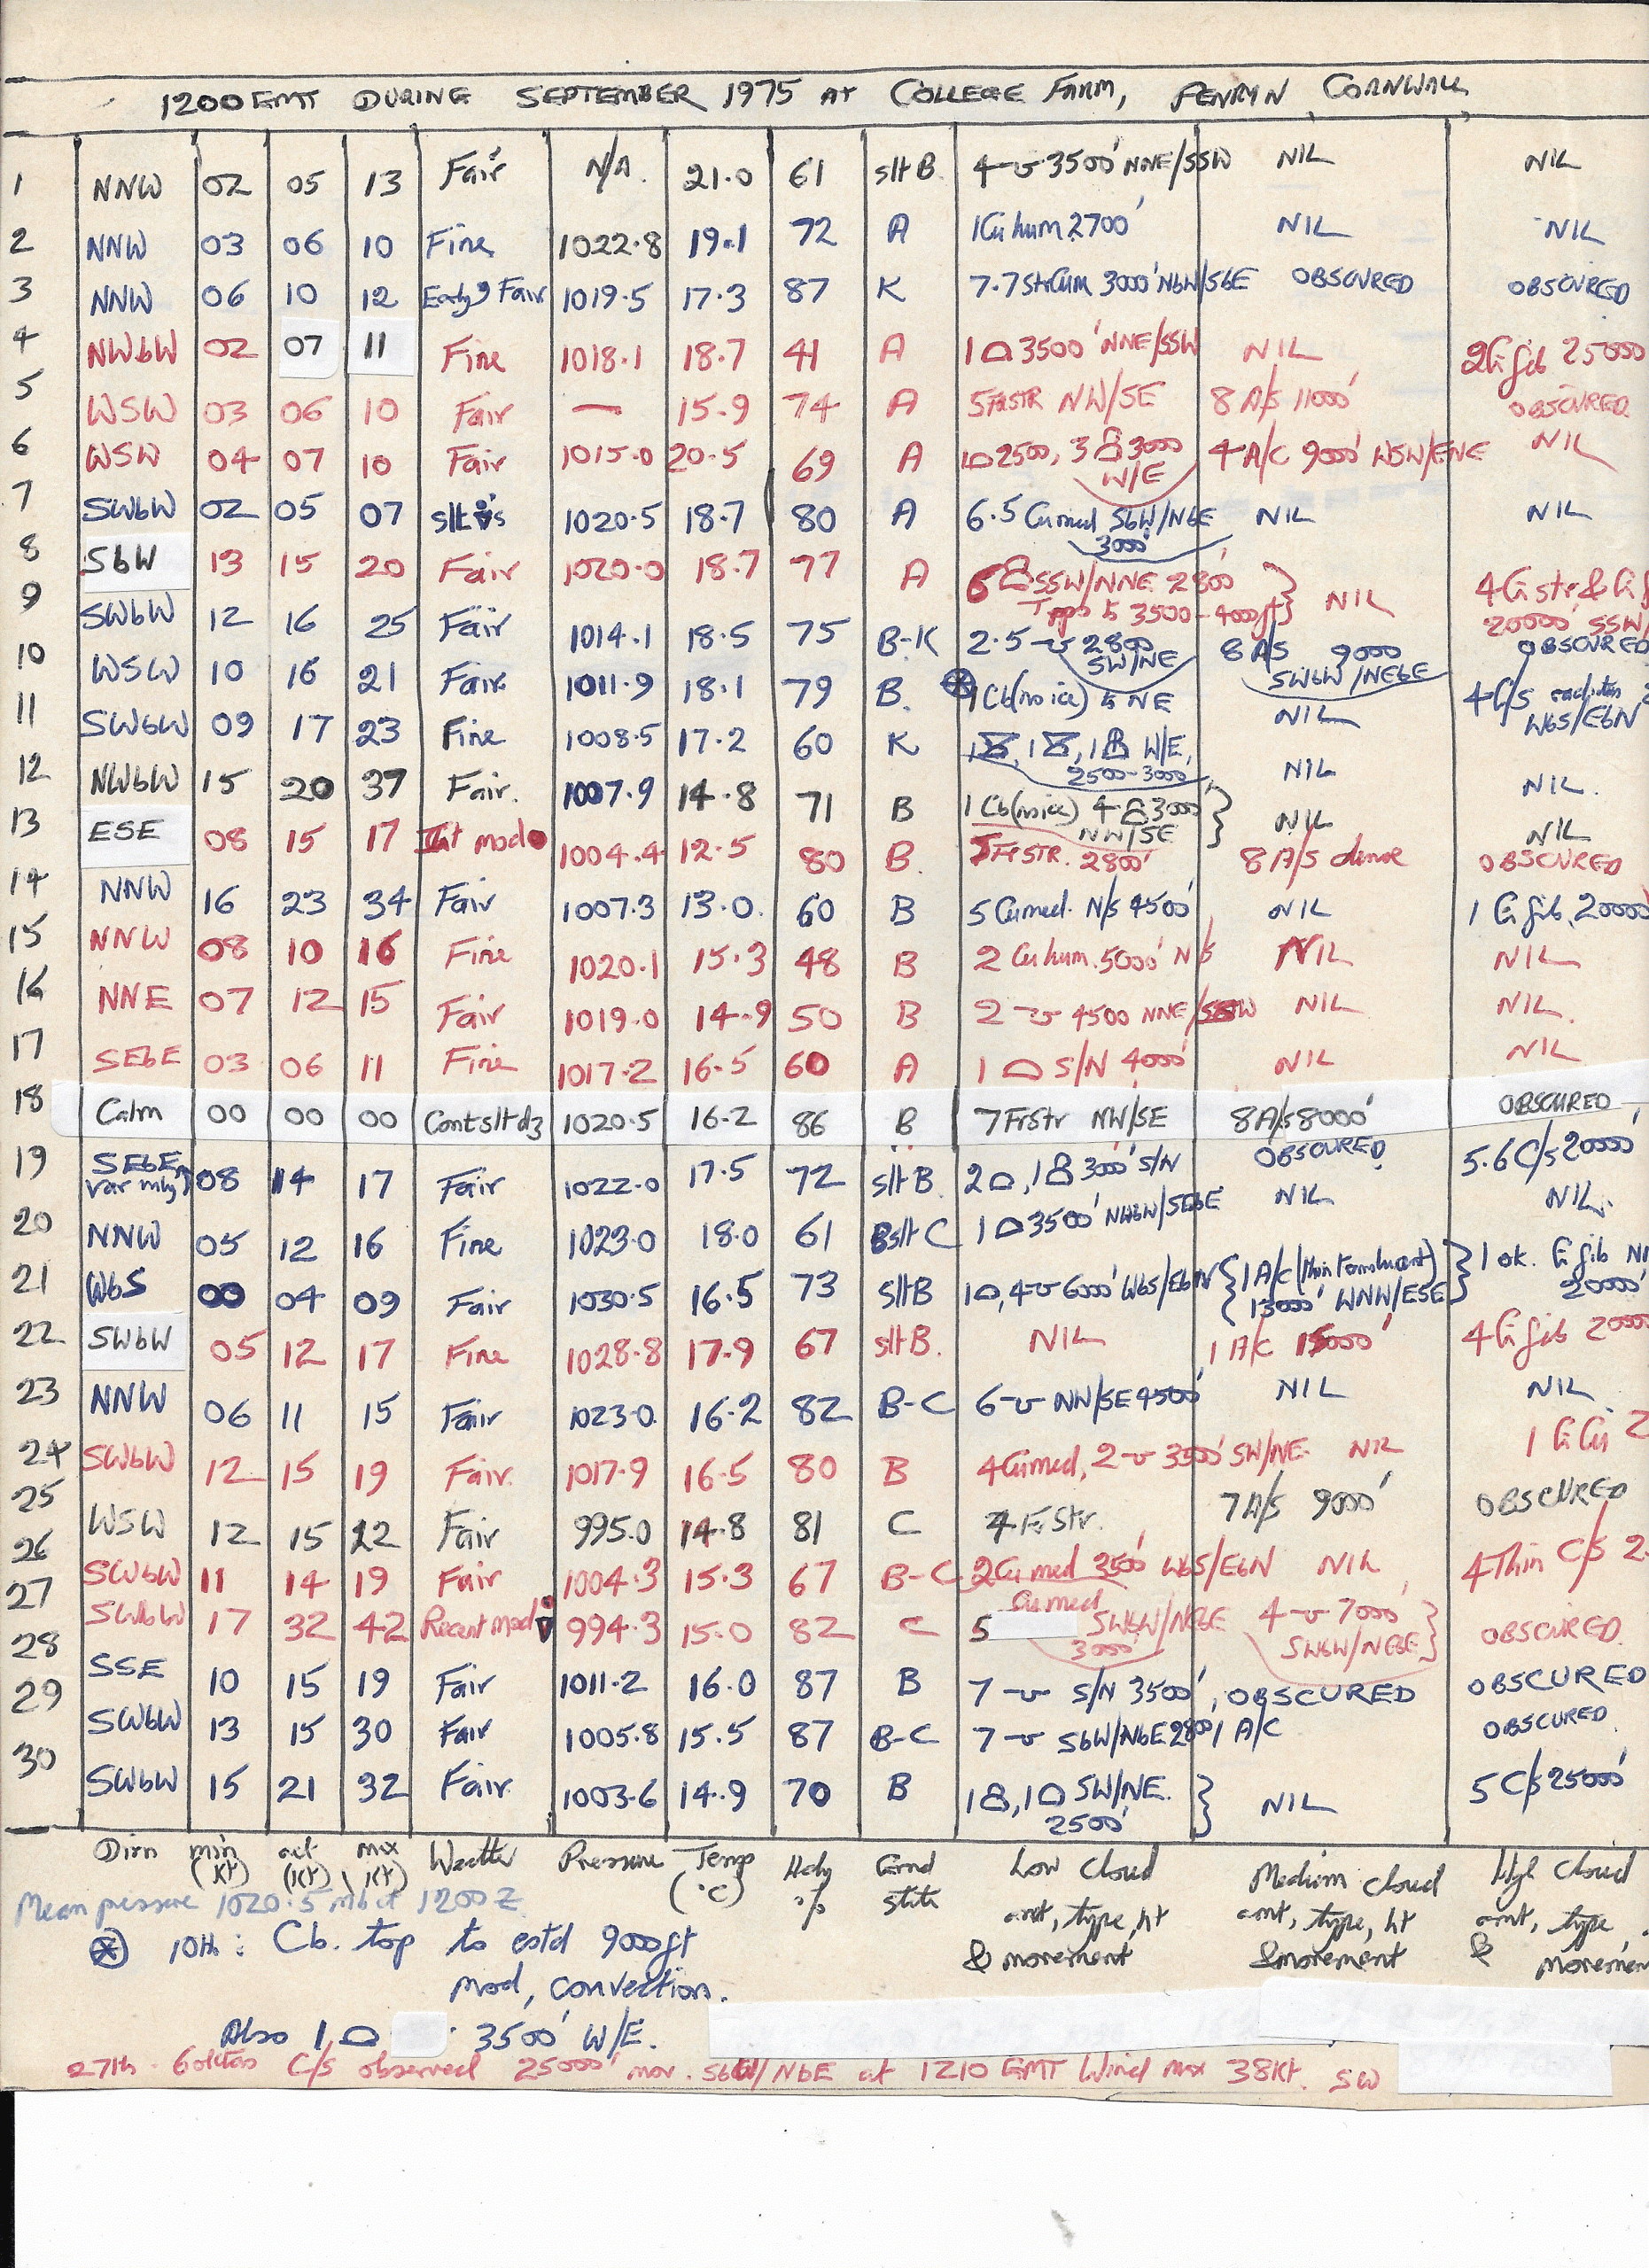 1200 GMT DURING SEPTEMBER 1975 AT COLLEGE FARM, PENRYN, CORNWALL
1 NNW 02 05 13 Fair N/A. 21.0 61 slt B 3500' NNE/SSW NIL NIL
2 NNW 03 06 10 Fine 1022.8 19.1 72 A 1 Cu hum 2700' NIL NIL
3 NNW 06 10 12 Fair 1019.5 17.3 87 K 7.7 StrCum 3000' NbW/SbE OBSCURED OBSCURED
4 NWbW 02 07 11 Fine 1018.1 18.7 41 A 1 3500' NNE/SSW NIL 2 Ci fib 25000
5 WSW 03 06 10 Fair — 15.9 74 A 5 FrSTR NW/SE 8 A/S 11000' OBSCURED
6 WSW 04 07 10 Fair 1015.0 20.5 69 A 1 2500, 3 3000 W/E 4 A/C 9000' WSW/ENE NIL
7 SWbW 02 05 07 slt 1020.5 18.7 80 A 6.5 Cu med SbW/NbE 3000' NIL NIL
8 SbW 13 15 20 Fair 1020.0 18.7 77 A 6 SSW/NNE 2800' Tops to 3500-4000ft NIL 4 Ci str & Ci 20000' SSW/
9 SWbW 12 16 25 Fair 1014.1 18.5 75 B-K 2.5 2800 SW/NE 8 AS 9000 SWbW/NEbE OBSCURED
10 WSW 10 16 21 Fair. 1011.9 18.1 79 B. 1 Cb (no ice) to NE NIL 4 C/S WbS/EbN
11 SWbW 09 17 23 Fine 1008.5 17.2 60 K 1, 1, 1 W/E, 2500-3000 NIL NIL.
12 NWbW 15 20 37 Fair. 1007.9 14.8 71 B 1 Cb (no ice) 4 3000 NW/SE NIL NIL
13 ESE 08 15 17 Int mod 1004.4 12.5 80 B. FrSTR. 2800' 8 A/S dense OBSCURED
14 NNW 16 23 34 Fair 1007.3 13.0. 60 B 5 Cu med. N/S 4500' NIL 1 Ci fib, 20000'
15 NNW 08 10 16 Fine 1020.1 15.3 48 B 2 Cu hum. 5000' N/S NIL NIL
16 NNE 07 12 15 Fair 1019.0 14.9 50 B 2 4500 NNE/SSW NIL NIL.
17 SEbE 03 06 11 Fine 1017.2 16.5 60 A 1 S/N 4000' NIL NIL
18 Calm 00 00 00 Cont slt dz 1020.5 16.2 86 B 7 FrStr NW/SE 8 A/S 8000' OBSCURED
19 SEbE var 08 14 17 Fair 1022.0 17.5 72 slt B. 2, 1 3000' S/N OBSCURED 5.6 C/S 20000'
20 NNW 05 12 16 Fine 1023.0 18.0 61 B slt C 1 3500' NWbW/SEbE NIL NIL.
21 WbS 00 04 09 Fair 1030.5 16.5 73 slt B 1, 4 6000' WbS/EbN 1 A/C (thin translucent) 13000' WNW/ESE 1 ok. Ci fib 20000'
22 SWbW 05 12 17 Fine 1028.8 17.9 67 slt B. NIL 1 A/C 15000' 4 Ci fib 20000
23 NNW 06 11 15 Fair 1023.0 16.2 82 B-C 6 NW/SE 4500' NIL NIL
24 SWbW 12 15 19 Fair. 1017.9 16.5 80 B 4 Cu med, 2 3500' SW/NE NIL 1 Ci Cu 2
25 WSW 12 15 22 Fair 995.0 14.8 81 C 4 Fr Str. 7 A/S 9000' OBSCURED
26 SWbW 11 14 19 Fair 1004.3 15.3 67 B-C 2 Cu med 2500' WbS/EbN NIL 4 Thin C/S 2
27 SWbW 17 32 42 Recent mod 994.3 15.0 82 C 5 Cu med SWbW/NEbE 3000' 4 7000' SWbW/NEbE OBSCURED.
28 SSE 10 15 19 Fair 1011.2 16.0 87 B 7 S/N 3500', OBSCURED OBSCURED
29 SWbW 13 15 30 Fair 1005.8 15.5 87 B-C 7 SbW/NbE 2800' 1 A/C OBSCURED
30 SWbW 15 21 32 Fair. 1003.6 14.9 70 B 1, 1 SW/NE. 2500' NIL 5 C/S 25000'
Dirn min (Kt) act (Kt) max (Kt) Weather Pressure Temp (°C) Hdy % Grnd state Low Cloud amt, type, ht & movement Medium cloud amt, type, ht & movement High Cloud amt, type, & movemen
Mean pressure 1020.5 mb at 1200Z
10th: Cb. top to estd 9000ft
mod, convection.
Also 1 3500' W/E.
27th. 6 oktas C/S observed 25000' mov. SbW/NbE at 1210 GMT Wind max 38Kt. SW